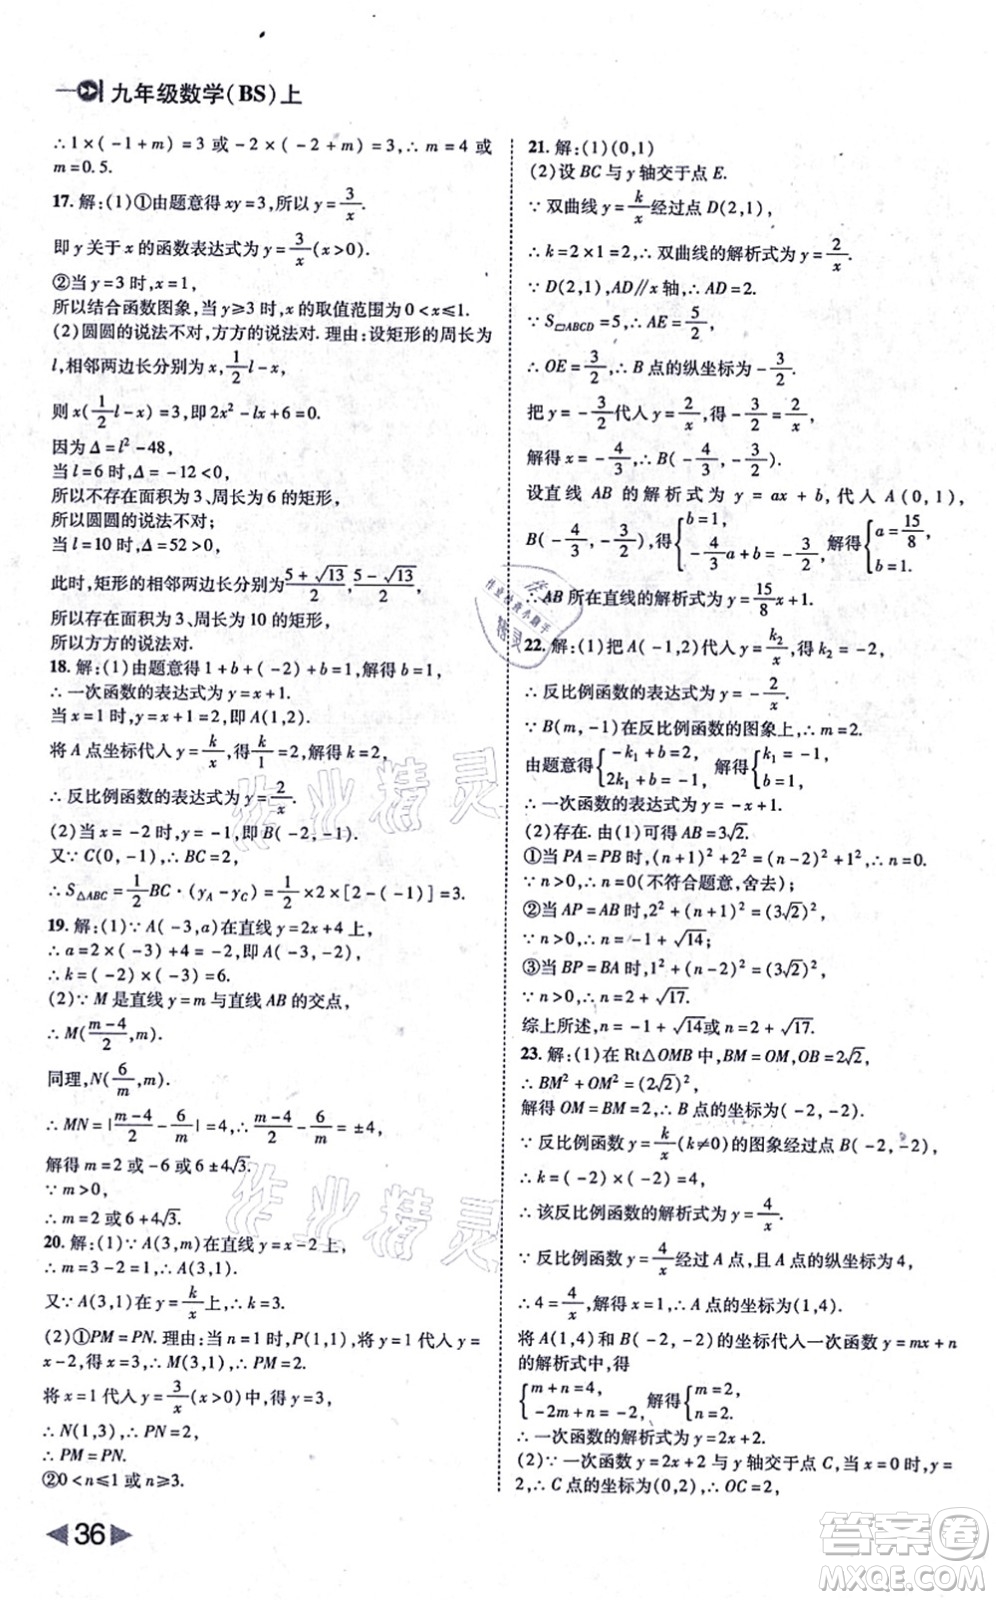 九年级数学(BS)上
∴1×(-1+m)=3 或-2×(-1+m)=3, ∴m=4 或
m=0.5.
17. 解:(1)①由题意得 xy=3,所以 y=3/x.
即 y 关于 x 的函数表达式为 y=3/x(x>0).
②当 y=3 时,x=1,
所以结合函数图象,当 y≥3 时,x 的取值范围为 0<x≤1.
(2)圆圆的说法不对,方方的说法对. 理由:设矩形的周长为
l,相邻两边长分别为 x, 1/2 l-x,
则 x(1/2 l-x)=3,即 2x²-lx+6=0.
因为 Δ=l²-48,
当 l=6 时,Δ=-12<0,
所以不存在面积为 3、周长为 6 的矩形,
所以圆圆的说法不对;
当 l=10 时,Δ=52>0,
此时,矩形的相邻两边长分别为 (5+√13)/2, (5-√13)/2,
所以存在面积为 3、周长为 10 的矩形,
所以方方的说法对.
18. 解:(1)由题意得 1+b+(-2)+b=1,解得 b=1,
∴一次函数的表达式为 y=x+1.
当 x=1 时,y=x+1=2,即 A(1,2).
将 A 点坐标代入 y=k/x,得 k/1=2,即 k=2,
∴反比例函数的表达式为 y=2/x.
(2)当 x=-2 时,y=-1,即 B(-2,-1).
又∵C(0,-1),∴BC=2,
∴S△ABC=1/2 BC·(yA-yC)=1/2×2×[2-(-1)]=3.
19. 解:(1)∵A(-3,a)在直线 y=2x+4 上,
∴a=2×(-3)+4=-2,
∴k=(-2)×(-3)=6.
(2)∵M 是直线 y=m 与直线 AB 的交点,
∴M((m-4)/2,m).
同理,N(6/m,m).
∴MN=|(m-4)/2-6/m|=(m-4)/2-6/m=±4,
解得 m=2 或-6 或 6±4√3.
∵m>0,
∴m=2 或 6+4√3.
20. 解:(1)∵A(3,m)在直线 y=x-2 上,
∴m=3-2=1,∴A(3,1).
又∵A(3,1)在 y=k/x 上,∴k=3.
(2)①PM=PN. 理由:当 n=1 时,P(1,1),将 y=1 代入 y=
x-2,得 x=3,∴M(3,1),∴PM=2.
将 x=1 代入 y=3/x(x>0)中,得 y=3,
∴N(1,3),∴PN=2,
∴PM=PN.
②0<n≤1 或 n≥3.
36
21. 解:(1)(0,1)
(2)设 BC 与 y 轴交于点 E.
∵双曲线 y=k/x 经过点 D(2,1),
∴k=2×1=2,∴双曲线的解析式为 y=2/x.
∵D(2,1),AD∥x 轴,∴AD=2.
∵S▱ABCD=5,∴AE=5/2,
∴OE=3/2,∴B 点的纵坐标为-3/2.
把 y=-3/2 代入 y=2/x,得-3/2=2/x,
解得 x=-4/3,∴B(-4/3,-3/2).
设直线 AB 的解析式为 y=ax+b,代入 A(0,1),
B(-4/3,-3/2),得{b=1, -4/3 a+b=-3/2, 解得{a=15/8, b=1.
∴AB 所在直线的解析式为 y=15/8 x+1.
22. 解:(1)把 A(-1,2)代入 y=k₂/x,得 k₂=-2,
∴反比例函数的表达式为 y=-2/x.
∵B(m,-1)在反比例函数的图象上,∴m=2.
由题意得{-k₁+b=2, 2k₁+b=-1, 解得{k₁=-1, b=1.
∴一次函数的表达式为 y=-x+1.
(2)存在. 由(1)可得 AB=3√2.
①当 PA=PB 时,(n+1)²+4=(n-2)²+1,∴n=0.
∵n>0,∴n=0(不符合题意,舍去);
②当 AP=AB 时,2²+(n+1)²=(3√2)²,
∵n>0,∴n=-1+√14;
③当 BP=BA 时,1²+(n-2)²=(3√2)²,
∵n>0,∴n=2+√17.
综上所述,n=-1+√14或 n=2+√17.
23. 解:(1)在 Rt△OMB 中,BM=OM,OB=2√2,
∴BM²+OM²=(2√2)²,
解得 OM=BM=2,∴B 点的坐标为(-2,-2).
∵反比例函数 y=k/x(k≠0)的图象经过点 B(-2,-2),
∴k=(-2)×(-2)=4,
∴该反比例函数的解析式为 y=4/x.
∵反比例函数 y=4/x 经过 A 点,且 A 点的纵坐标为 4,
∴4=4/x,解得 x=1,∴A 点的坐标为(1,4).
将 A(1,4)和 B(-2,-2)的坐标代入一次函数 y=mx+n
的解析式中,得
{m+n=4, -2m+n=-2, 解得{m=2, n=2.
∴一次函数的解析式为 y=2x+2.
(2)∵一次函数 y=2x+2 与 y 轴交于点 C,当 x=0 时,y=
2,∴C 点的坐标为(0,2),∴OC=2,
作业精灵
作业精灵
答案卷
MXQE.COM